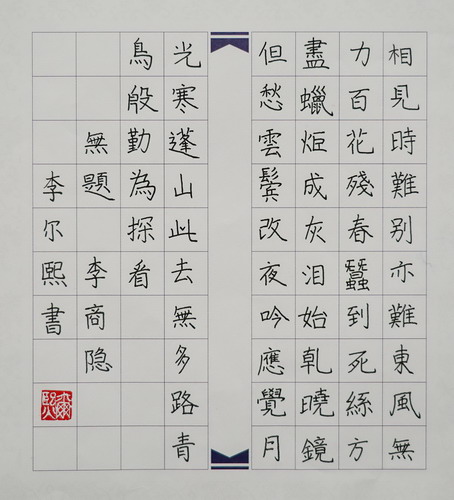 相見時難别亦難東風無
力百花殘春蠶到死絲方
盡蠟炬成灰泪始乹曉鏡
但愁雲鬓改夜吟應覺月
光寒蓬山此去無多路青
鳥殷勤為探看
無題 李商隐
李尔熙書